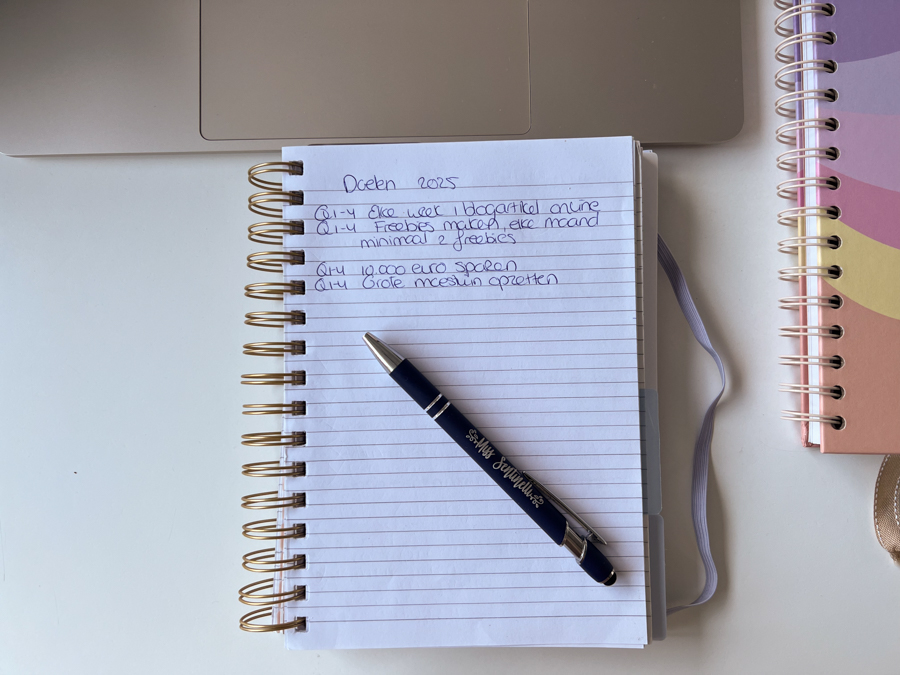 Doelen 2025
Q1-4 Elke week 1 blogartikel online
Q1-4 Freebies maken, elke maand
minimaal 2 freebies
Q1-4 10.000 euro sparen
Q1-4 Grote moestuin opzetten
Miss Sentinelli